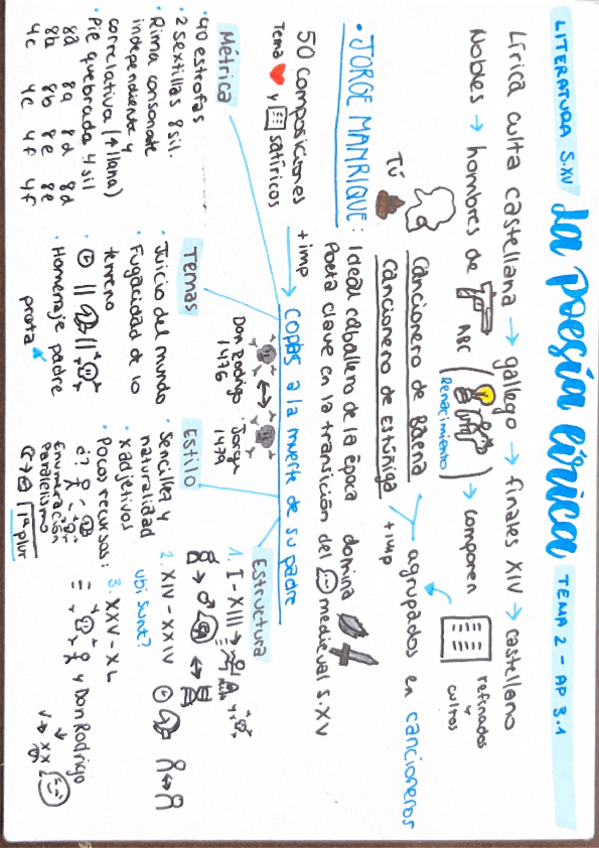 LITERATURA S.XV
La poesía lírica
TEMA 2 - AP 3.1
Lírica culta castellana → gallego → finales XIV → castellano
Nobles → hombres de
ABC
(Renacimiento)
→ componen
refinados
y
cultos
Tú
Cancionero de Baena
Cancionero de Estúñiga
+imp
agrupados en cancioneros
• JORGE MANRIQUE:
Ideal caballero de la época domina
Poeta clave en la transición del medieval S.XV
50 composiciones
Tema ❤ y satíricos
+imp
→ COPLAS a la muerte de su padre
Don Rodrigo
1476
Jorge
1479
Métrica
• 40 estrofas
• 2 sextillas 8 sil.
• Rima consonante
independiente y
correlativa (+ llana)
• Pie quebrado 4 sil
8a 8a 8d 8d
8b 8b 8e 8e
4c 4c 4f 4f
Temas
• Juicio del mundo
• Fugacidad de lo
terreno
• Homenaje padre
prota
Estilo
• Sencillez y
naturalidad
• x adjetivos
• Pocos recursos:
¿?
Enumeración
Paralelismo
1ª plur
Estructura
1. I - XIII →
2. XIV - XXIV
Ubi sunt?
3. XXV - XL
y Don Rodrigo